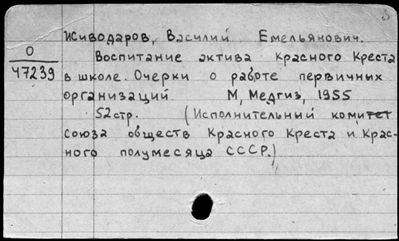 Живодаров, Василий Емельянович.
О
47239
Воспитание актива Красного Креста
в школе. Очерки о работе первичных
организаций М, Медгиз, 1955
52 стр. (Исполнительный комитет
союза обществ Красного Креста и Крас-
ного полумесяца СССР.)